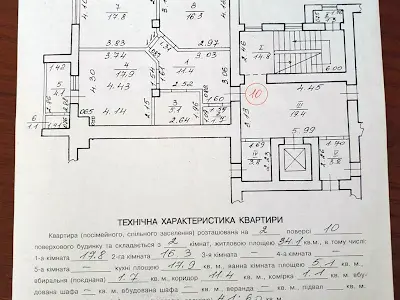 7
17.8
8
16.3
3.83
2.97
3.74
1.42
4
17.9
4.43
4.30
1
11.4
2.44
3.03
3.06
5
4.1
065
4.14
2.15
3
5.1
2.64
1.96
1.60
6
1.1
1.91
2.46
I
14.8
6.00
10
4.45
III
19.4
3.13
5.99
1.69
IV
3.8
1.90
3.8
ТЕХНІЧНА ХАРАКТЕРИСТИКА КВАРТИРИ
Квартира (посімейного, спільного заселення) розташована на 2 поверсі 10
поверхового будинку та складається з 2 кімнат, житловою площею 34.1 кв.м, в тому числі:
1-а кімната 17.8 2-га кімната 16.3 3-я кімната — 4-а кімната
5-а кімната — кухні площею 17.9 кв. м, ванна кімната площею 5.1 кв. м,
вбиральня (поєднана) 1.7 кв. м, коридор 11.4 кв. м, комірка 1.1 кв. м, вбудована
шафа — кв. м, вбудована шафа — кв. м, веранда — кв. м, підвал — кв. м
41.60 кв. м